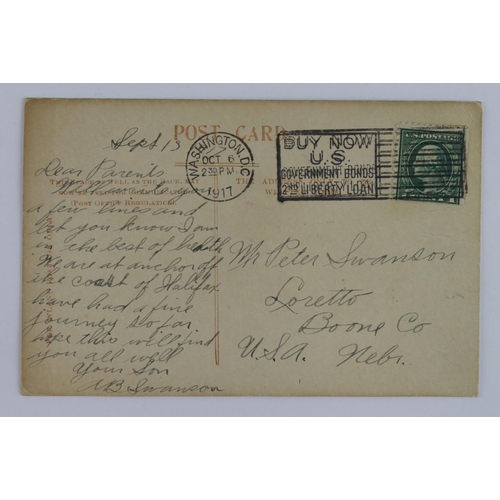 POST CARD
WASHINGTON, D.C.
OCT 6
2 30 P.M.
1917
BUY NOW
U.S.
GOVERNMENT BONDS
2ND LIBERTY LOAN
U.S. POSTAGE
Sept 13
Dear Parents
you
a few lines and
let you know I am
in the best of health
We are at anchor off
the coast of Halifax
have had a fine
journey so far
hope this will find
you all well
Your Son
MB Swanson
Mr Peter Swanson
Loretto
Boone Co
U.S.A. Nebr.